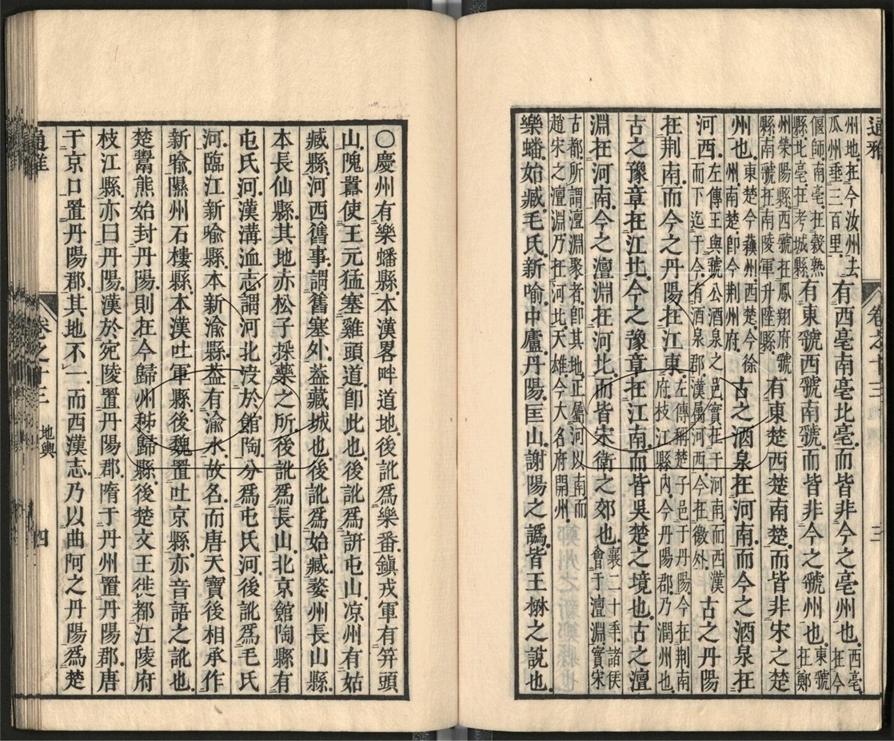 通雅 卷之十三 三
州地在今汝州去
瓜州垂三百里
有西亳南亳北亳而皆非今之亳州也
西亳
在今
偃師南亳在穀熟
縣北亳在考城縣
有東虢西虢南虢而皆非今之虢州也
東虢
在鄭
州滎陽縣西虢在鳳翔府虢
縣南虢在南陵軍升陸縣
有東楚西楚南楚而皆非宋之楚
州也
東楚今蘄州西楚今徐
州南楚即今荆州府
古之酒泉在河南而今之酒泉在
河西
左傳王與虢公酒泉之邑實在于河南而西漢
而下迄于今有酒泉郡漢屬河西今在徽外
古之丹陽
在荆南而今之丹陽在江東
左傳稱楚子邑于丹陽今在荆南
府枝江縣內今丹陽郡乃潤州也
古之豫章在江北今之豫章在江南而皆吳楚之境也古之澶
淵在河南今之澶淵在河北而皆宋衛之郊也
襄二十年諸侯
會于澶淵實宋
古都所謂澶淵聚者即其地正屬河以南而
趙宋之澶淵乃在河北天雄今大名府開州
樂蟠始臧毛氏新喻中廬丹陽匡山謝陽之譌皆王楙之說也
〇慶州有樂蟠縣本漢畧畔道地後訛爲樂番鎮戎軍有笄頭
山隗囂使王元猛塞雞頭道卽此也後訛爲訮屯山凉州有姑
臧縣河西舊事謂舊塞外葢藏城也後訛爲始臧婺州長山縣
本長仙縣其地亦松子採藥之所後訛爲長山北京館陶縣有
屯氏河漢溝洫志謂河北決於館陶分爲屯氏河後訛爲毛氏
河臨江新喻縣本新渝縣葢有渝水故名而唐天寶後相承作
新喻隰州石樓縣本漢吐軍縣後魏置吐京縣亦音語之訛也
楚鬻熊始封丹陽則在今歸州秭歸縣後楚文王徙都江陵府
枝江縣亦曰丹陽漢於宛陵置丹陽郡隋于丹州置丹陽郡唐
于京口置丹陽郡其地不一而西漢志乃以曲阿之丹陽爲楚
通雅 卷之十三 地輿 四